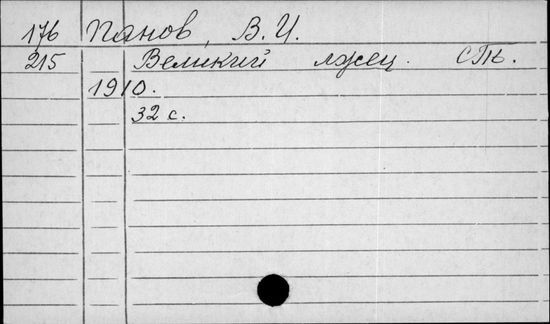 176 Панов, В. И.
215 Великий лжец. СПб.
1910.
32 с.